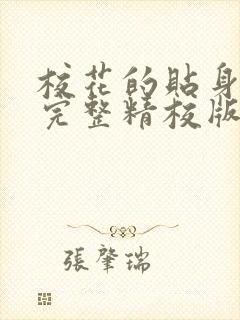 校花的貼身
完整精校版
張肇瑞